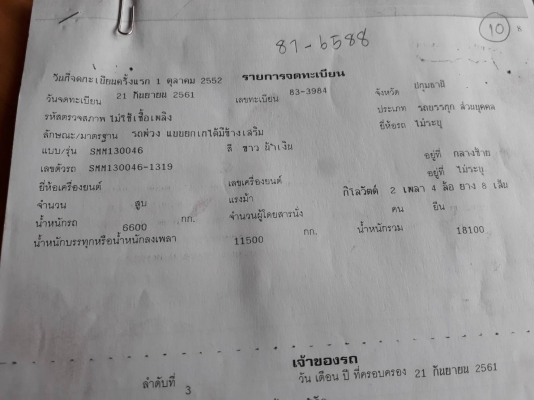 87-6588
10
วันที่จดทะเบียนครั้งแรก 1 ตุลาคม 2552 รายการจดทะเบียน
วันจดทะเบียน 21 กันยายน 2561 เลขทะเบียน 83-3984 จังหวัด ปทุมธานี
รหัสตรวจสภาพ ไม่ใช้เชื้อเพลิง ประเภท รถบรรทุก ส่วนบุคคล
ลักษณะ/มาตรฐาน รถพ่วง แบบยกเทได้มีข้างเสริม ยี่ห้อรถ ไม่ระบุ
แบบ/รุ่น SMM130046 สี ขาว น้ำเงิน
เลขตัวรถ SMM130046-1319 อยู่ที่ กลางซ้าย
ยี่ห้อเครื่องยนต์ เลขเครื่องยนต์ อยู่ที่ ไม่ระบุ
จำนวน สูบ แรงม้า กิโลวัตต์ 2 เพลา 4 ล้อ ยาง 8 เส้น
น้ำหนักรถ 6600 กก. จำนวนผู้โดยสารนั่ง คน ยืน
น้ำหนักบรรทุกหรือน้ำหนักลงเพลา 11500 กก. น้ำหนักรวม 18100
เจ้าของรถ
ลำดับที่ 3 วัน เดือน ปี ที่ครอบครอง 21 กันยายน 2561